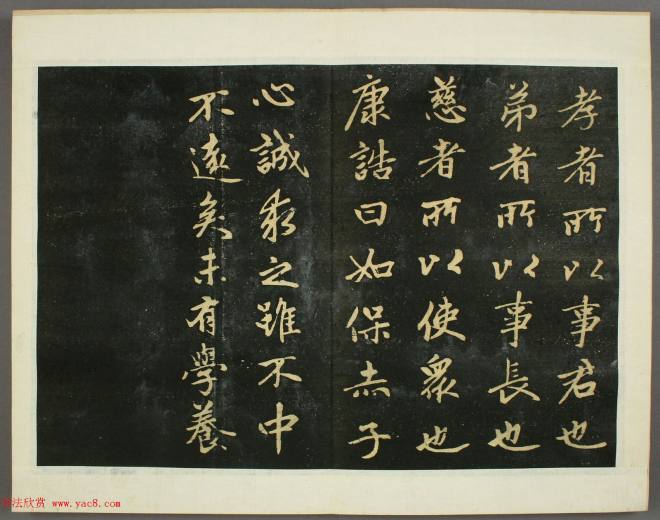 孝者所以事君也
弟者所以事長也
慈者所以使眾也
康誥曰如保赤子
心誠求之雖不中
不遠矣未有學養
书法欣赏 www.yac8.com